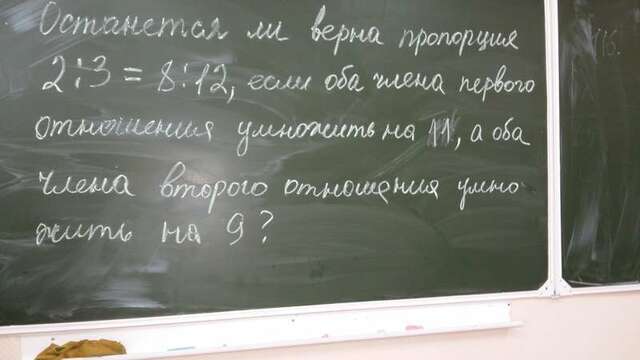 Останется ли верна пропорция
2:3 = 8:12, если оба члена первого
отношения умножить на 11, а оба
члена второго отношения умно
жить на 9?